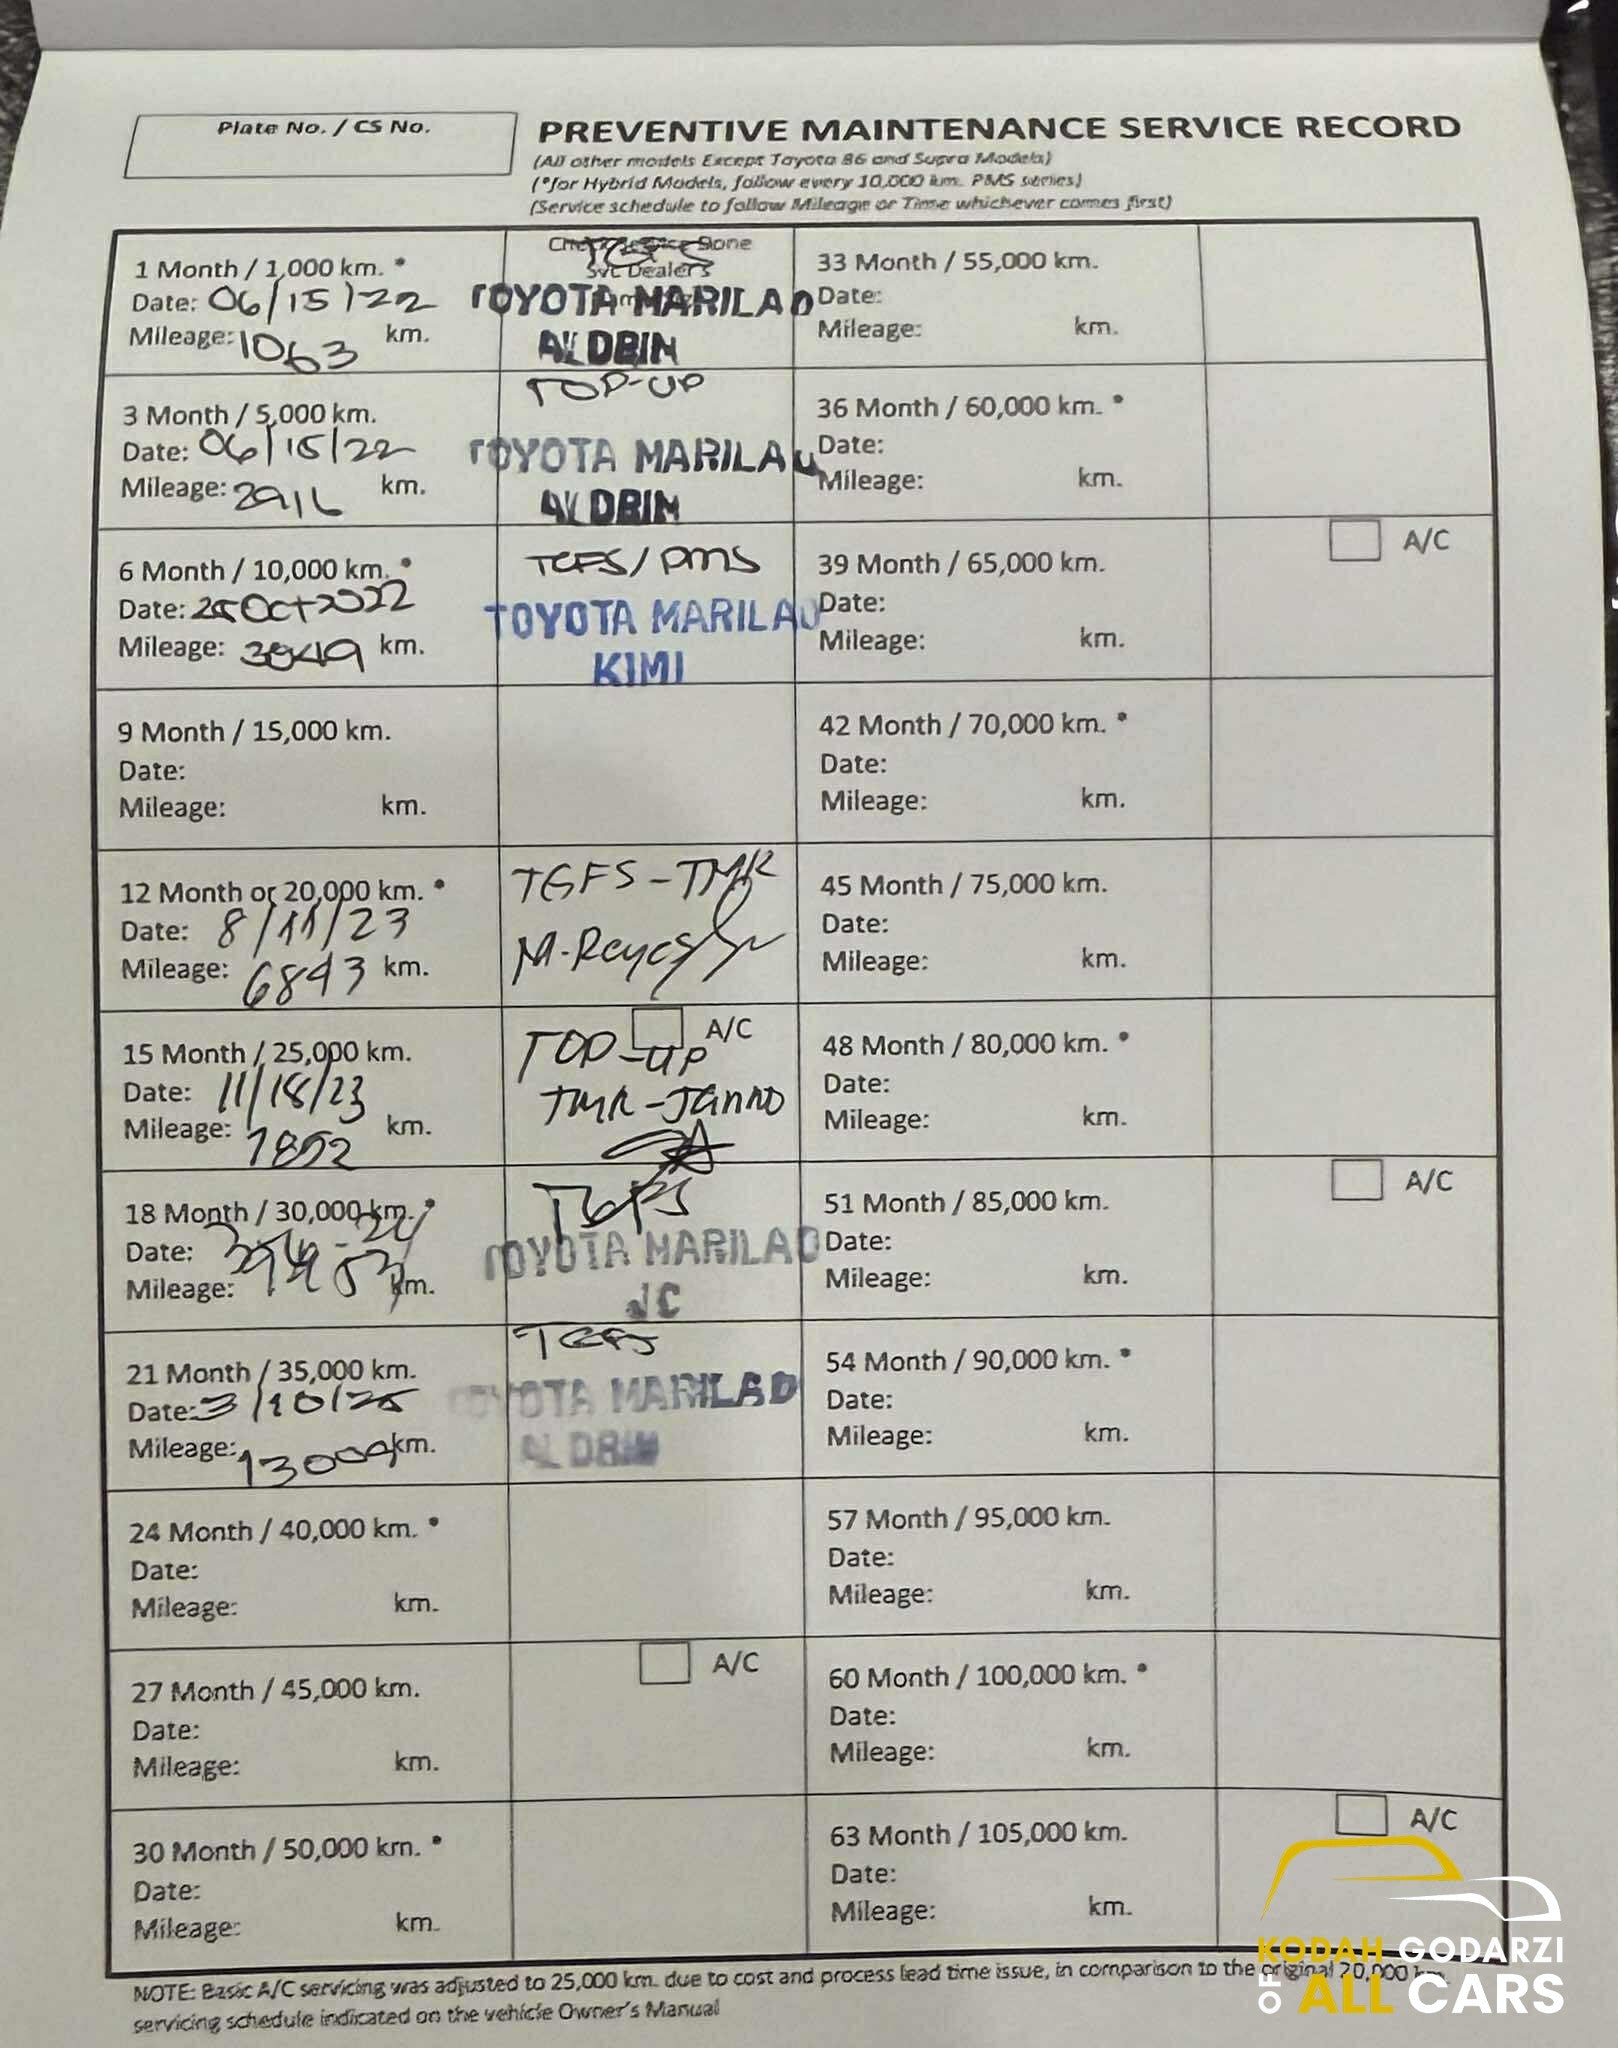 Plate No. / CS No.
PREVENTIVE MAINTENANCE SERVICE RECORD
(All other models Except Toyota 86 and Supra Models)
(*for Hybrid Models, follow every 10,000 km. PMS series)
(Service schedule to follow Mileage or Time whichever comes first)
1 Month / 1,000 km. *
Date: 06/15/22
Mileage: 1063 km.
Done
Svc Dealer's
TOYOTA MARILAO
ALDRIN
3 Month / 5,000 km.
Date: 06/15/22
Mileage: 2916 km.
TOP-UP
TOYOTA MARILAO
ALDRIN
6 Month / 10,000 km. *
Date: Oct 2022
Mileage: km.
TGFS/PMS
TOYOTA MARILAO
KIMI
9 Month / 15,000 km.
Date:
Mileage: km.
12 Month or 20,000 km. *
Date: 8/11/23
Mileage: 6843 km.
TGFS-TMR
M-Reyes
15 Month / 25,000 km.
Date: 11/18/23
Mileage: 7852 km.
A/C
TOP-UP
TMR-JANNO
18 Month / 30,000 km. *
Date:
Mileage: km.
TGFS
TOYOTA MARILAO
JC
21 Month / 35,000 km.
Date: 3/10/25
Mileage: 13009 km.
TGFS
TOYOTA MARILAO
ALDRIN
24 Month / 40,000 km. *
Date:
Mileage: km.
27 Month / 45,000 km.
Date:
Mileage: km.
A/C
30 Month / 50,000 km. *
Date:
Mileage: km.
33 Month / 55,000 km.
Date:
Mileage: km.
36 Month / 60,000 km. *
Date:
Mileage: km.
39 Month / 65,000 km.
Date:
Mileage: km.
A/C
42 Month / 70,000 km. *
Date:
Mileage: km.
45 Month / 75,000 km.
Date:
Mileage: km.
48 Month / 80,000 km. *
Date:
Mileage: km.
51 Month / 85,000 km.
Date:
Mileage: km.
A/C
54 Month / 90,000 km. *
Date:
Mileage: km.
57 Month / 95,000 km.
Date:
Mileage: km.
60 Month / 100,000 km. *
Date:
Mileage: km.
63 Month / 105,000 km.
Date:
Mileage: km.
A/C
NOTE: Basic A/C servicing was adjusted to 25,000 km. due to cost and process lead time issue, in comparison to the original 20,000 km.
servicing schedule indicated on the vehicle Owner's Manual
KODAH GODARZI
OF ALL CARS